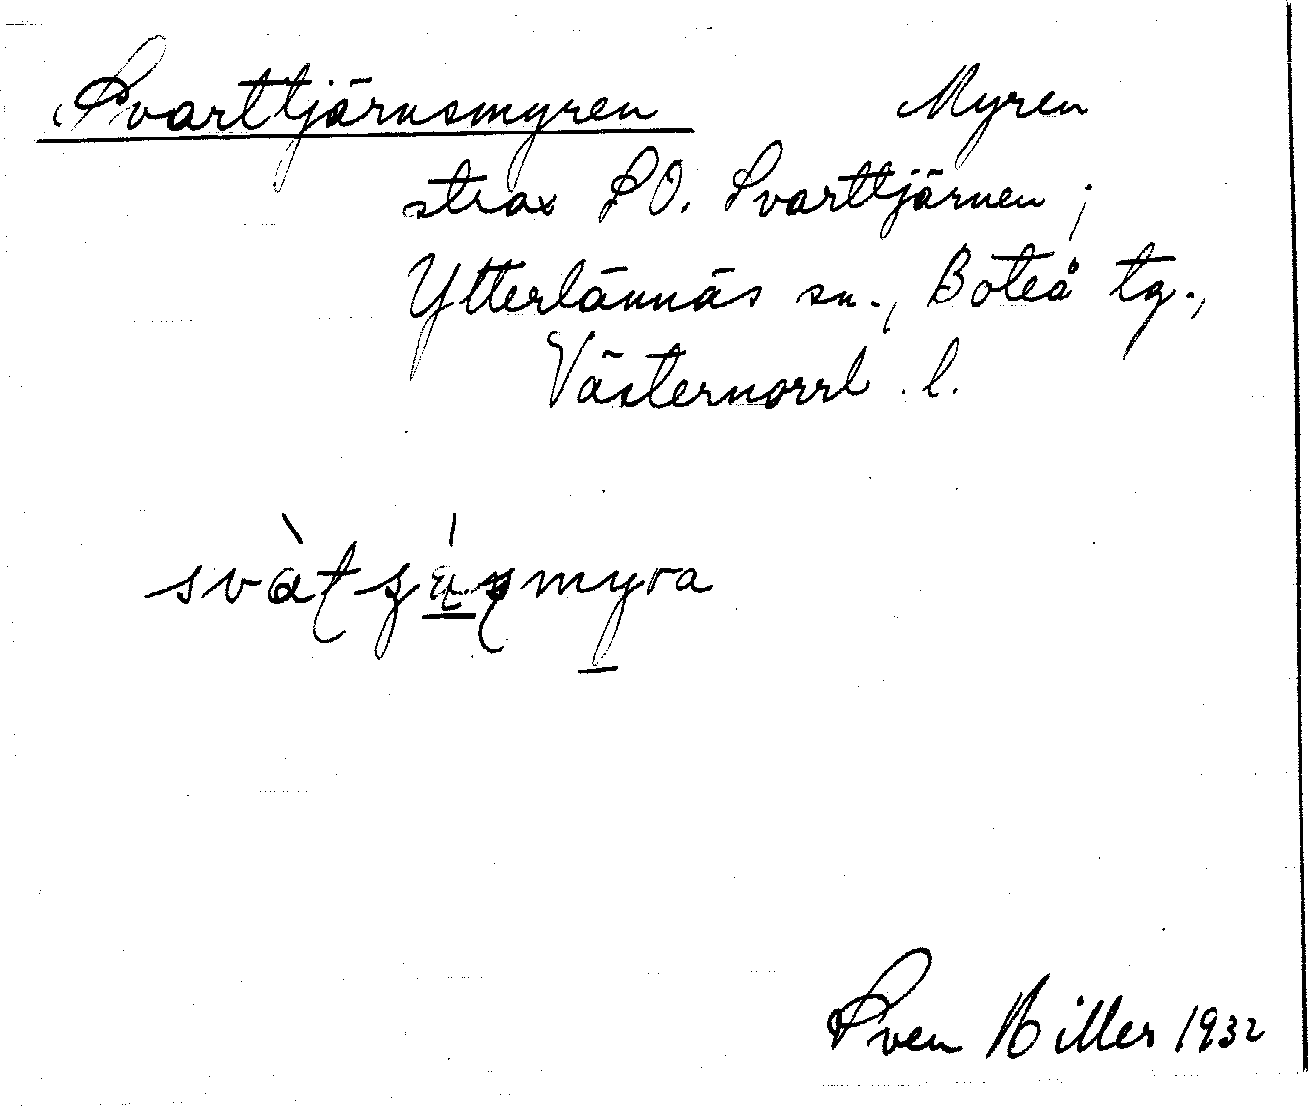 Svarttjärnsmyren Myren
strax SO. Svarttjärnen;
Ytterlännäs sn., Boteå tg.,
Västernorrl. l.
Sven Hiller 1932